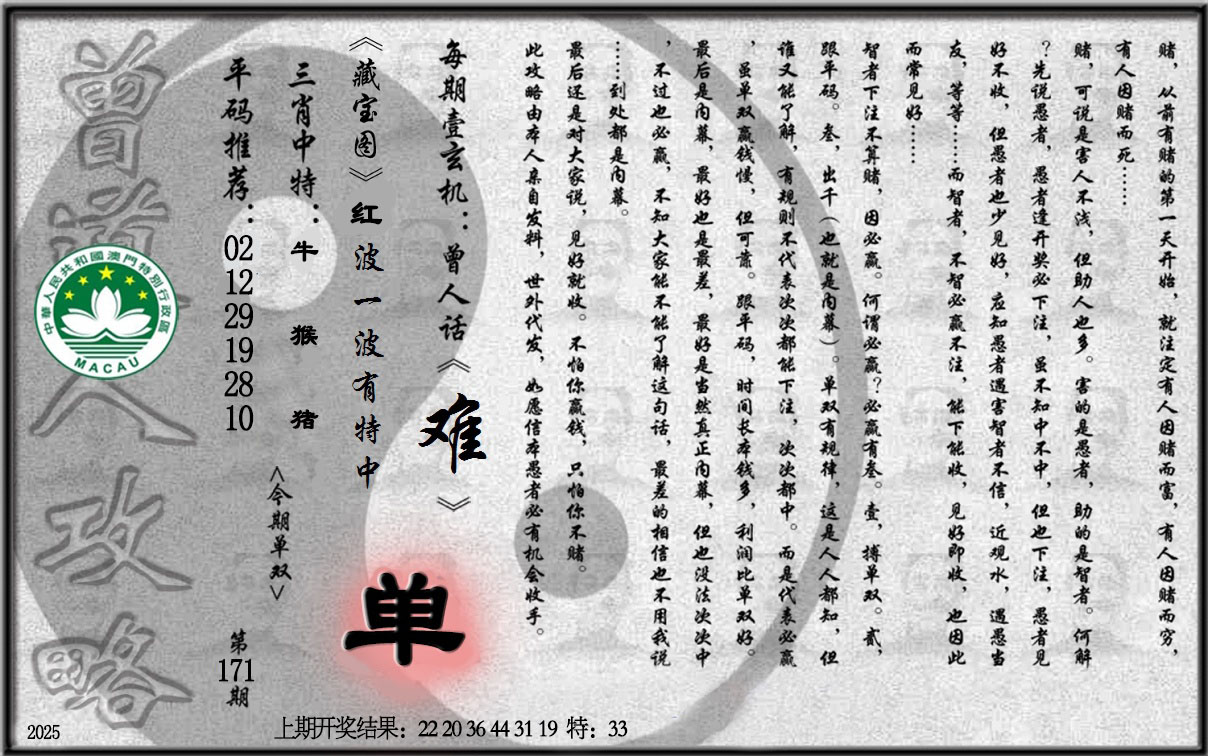 赌，从前有赌的第一天开始，就注定有人因赌而富，有人因赌而穷，
有人因赌而死……
赌，可说是害人不浅，但助人也多。害的是愚者，助的是智者。何解
？先说愚者，愚者逢开奖必下注，虽不知中不中，但也下注，愚者见
好不收，但愚者也少见好，应知愚者遇害智者不信，近观水，遇愚当
友，等等……而智者，不智必赢不注，能下能收，见好即收，也因此
而常见好……
智者下注不算赌，因必赢。何谓必赢？必赢有叁。壹，搏单双。贰，
跟平码。叁，出千（也就是内幕）。单双有规律，这是人人都知，但
谁又能了解，有规则不代表次次都能下注，次次都中。而是代表必赢
，虽单双赢钱慢，但可靠。跟平码，时间长本钱多，利润比单双好。
最后是内幕，最好也是最差，最好是当然真正内幕，但也没法次次中
，不过也必赢，不知大家能不能了解这句话，最差的相信也不用我说
……到处都是内幕。
最后还是对大家说，见好就收。不怕你赢钱，只怕你不赌。
此攻略由本人亲自发料，世外代发，如愿信本愚者必有机会收手。
每期壹玄机：曾人话《难》
《藏宝图》红波一波有特中
单
三肖中特：牛 猴 猪
<今期单双>
平码推荐：02 12 29 19 28 10
第171期
曾道人攻略
中華人民共和國澳門特別行政區
MACAU
2025
上期开奖结果：22 20 36 44 31 19 特：33